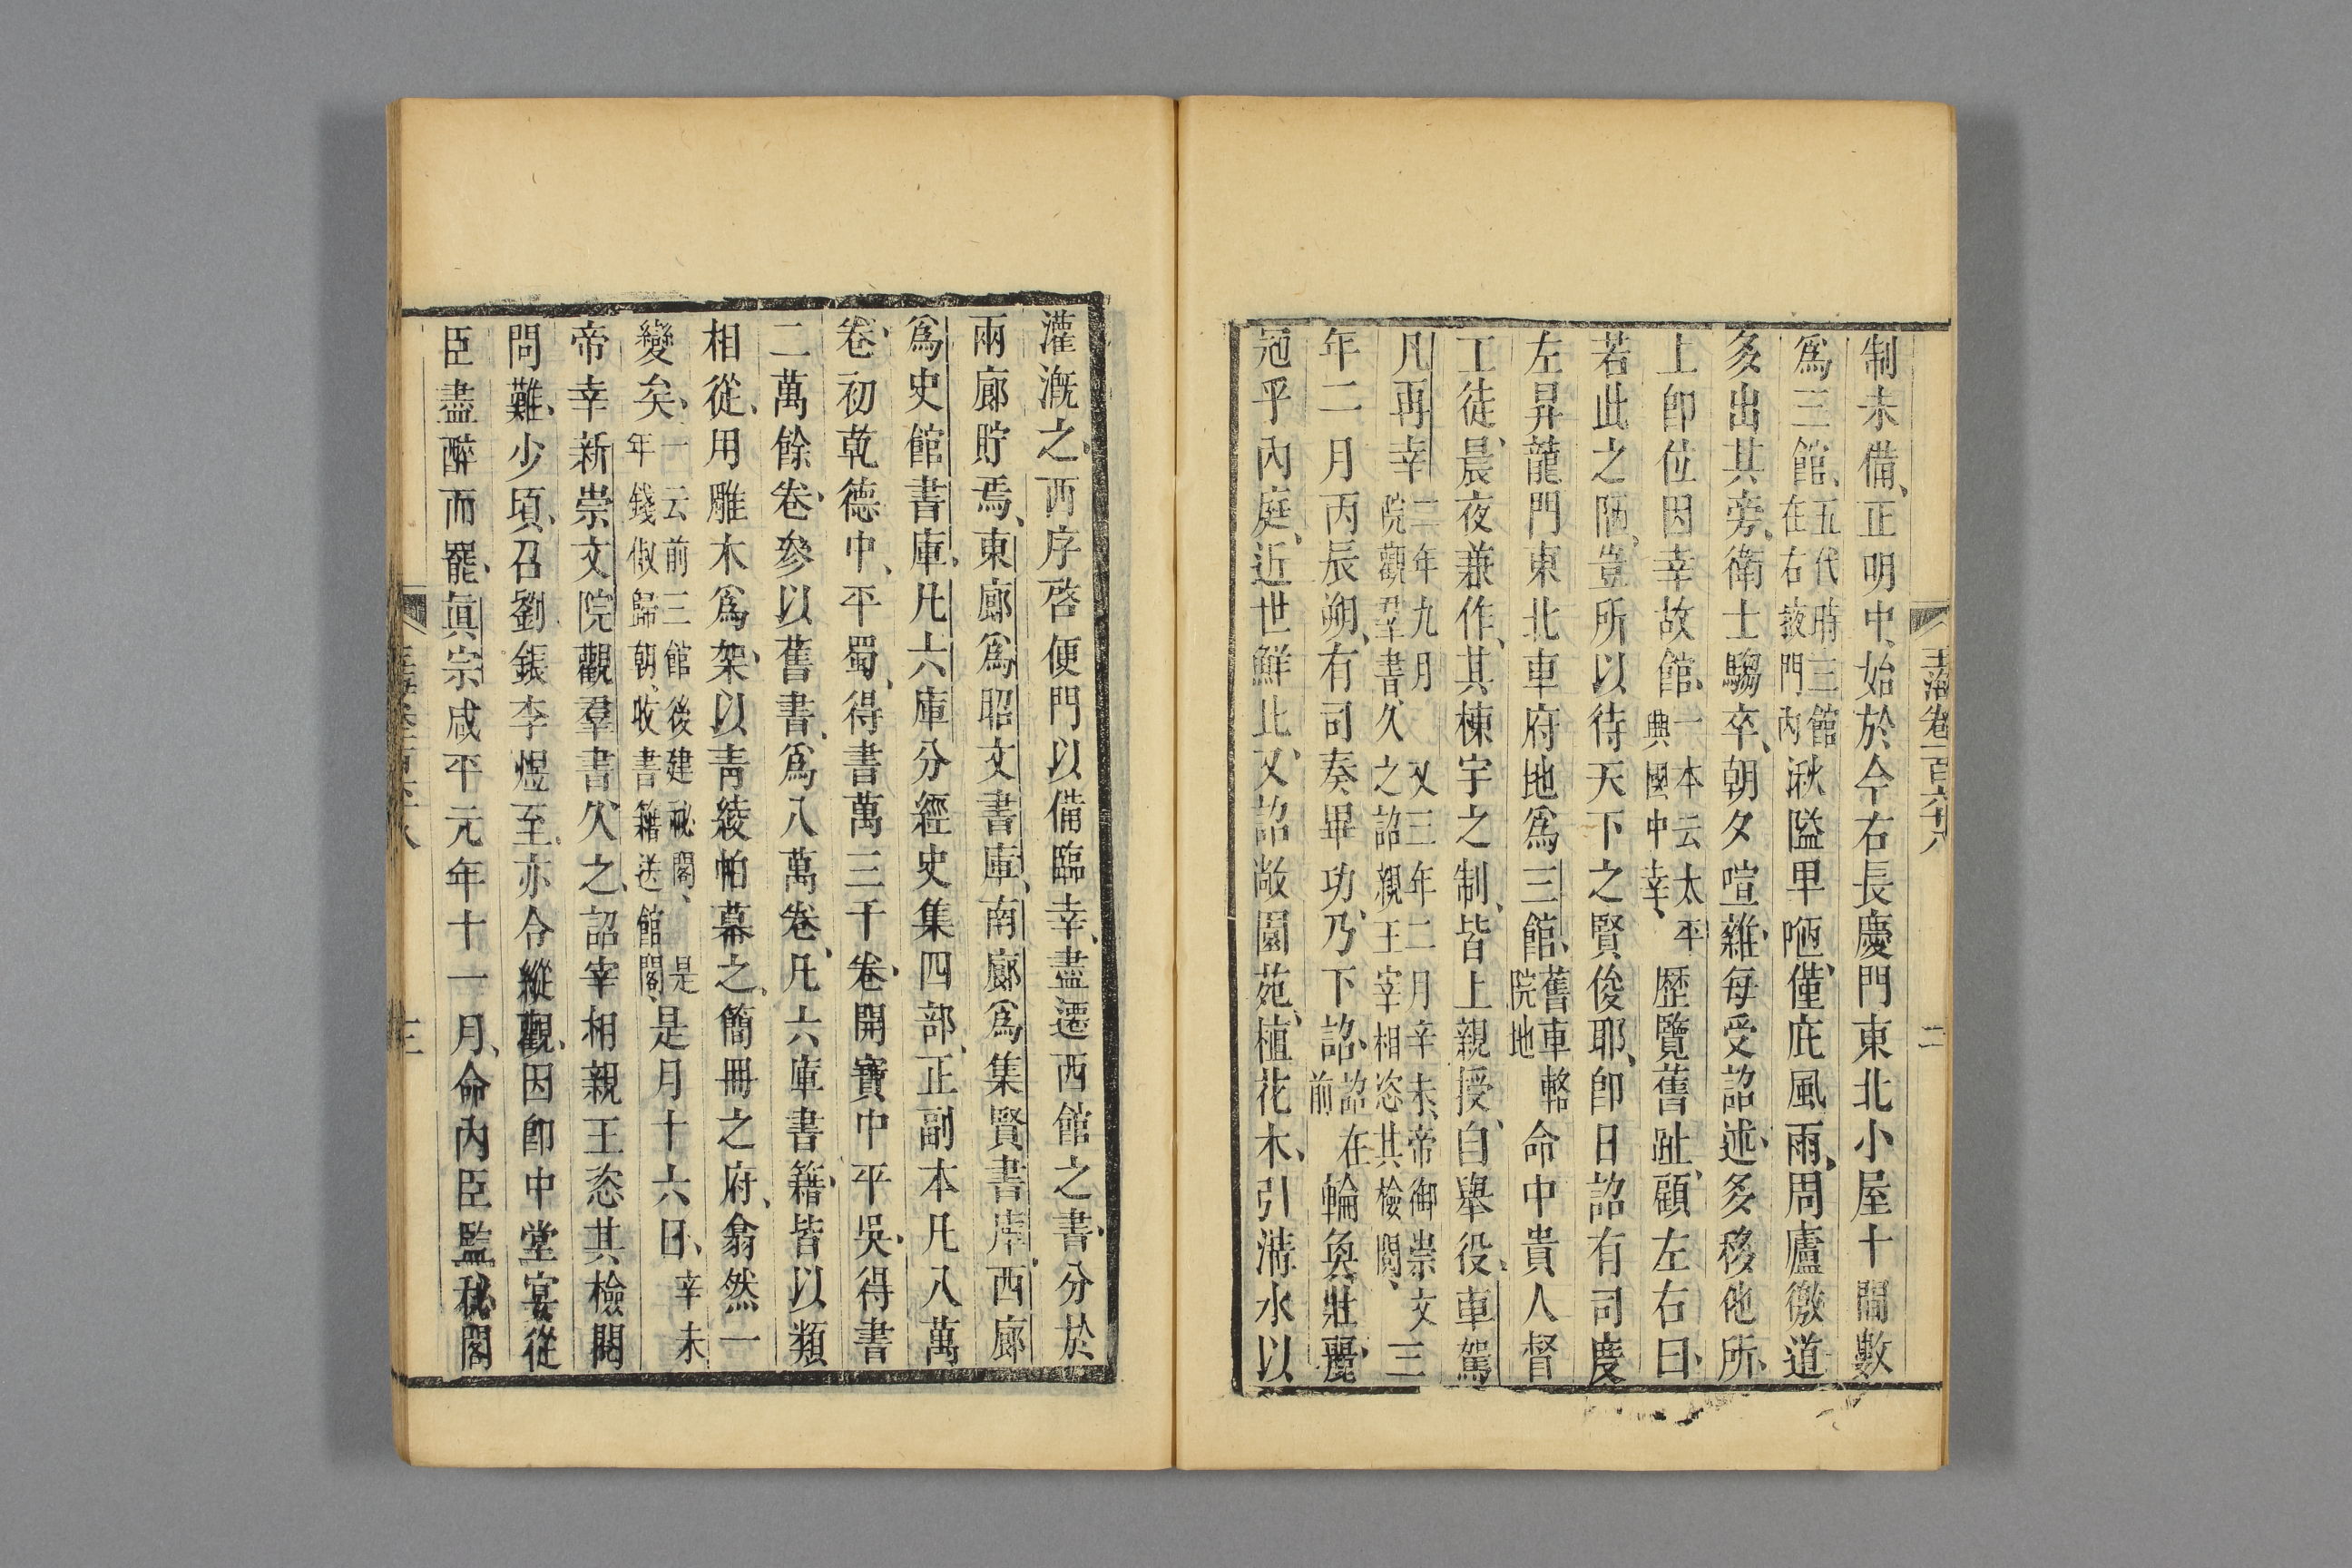 玉海卷一百六十八
二
制未備、正明中、始於今右長慶門東北小屋十間數
爲三館、五代時三館在右掖門內湫隘卑陋、僅庇風雨、周廬徼道
多出其旁、衛士騶卒、朝夕喧雜、每受詔述、多移他所、
上卽位因幸故館、一本云太平興國中幸、歷覽舊趾、顧左右曰、
若此之陋、豈所以待天下之賢俊耶、卽日詔有司度
左昇龍門東北車府地爲三館、舊車輅院地命中貴人督
工徒、晨夜兼作、其棟宇之制、皆上親授、自舉役、車駕
凡再幸二年九月、又三年二月辛未、帝御崇文院觀羣書、久之詔親王宰相恣其檢閱、三
年二月丙辰朔、有司奏畢功、乃下詔、詔在前輪奐壯麗、
冠乎內庭、近世鮮比、又詔敞園苑、植花木、引溝水以
灌漑之、西序啓便門以備臨幸、盡遷西館之書、分於
兩廊貯焉、東廊爲昭文書庫、南廊爲集賢書庫、西廊
爲史館書庫、凡六庫分經史集四部、正副本凡八萬
卷、初乾德中、平蜀、得書萬三千卷、開寶中平吳、得書
二萬餘卷、參以舊書、爲八萬卷、凡六庫書籍、皆以類
相從、用雕木爲架、以青綾帕冪之、簡冊之府、翕然一
變矣、一云前三館後建祕閣、是年錢俶歸朝、收書籍送館閣、是月十六日、辛未
帝幸新崇文院觀羣書、久之、詔宰相親王恣其檢閱
問難、少頃、召劉鋹李煜至、亦令縱觀、因卽中堂宴從
臣盡醉而罷、眞宗咸平元年十一月、命內臣監秘閣
三